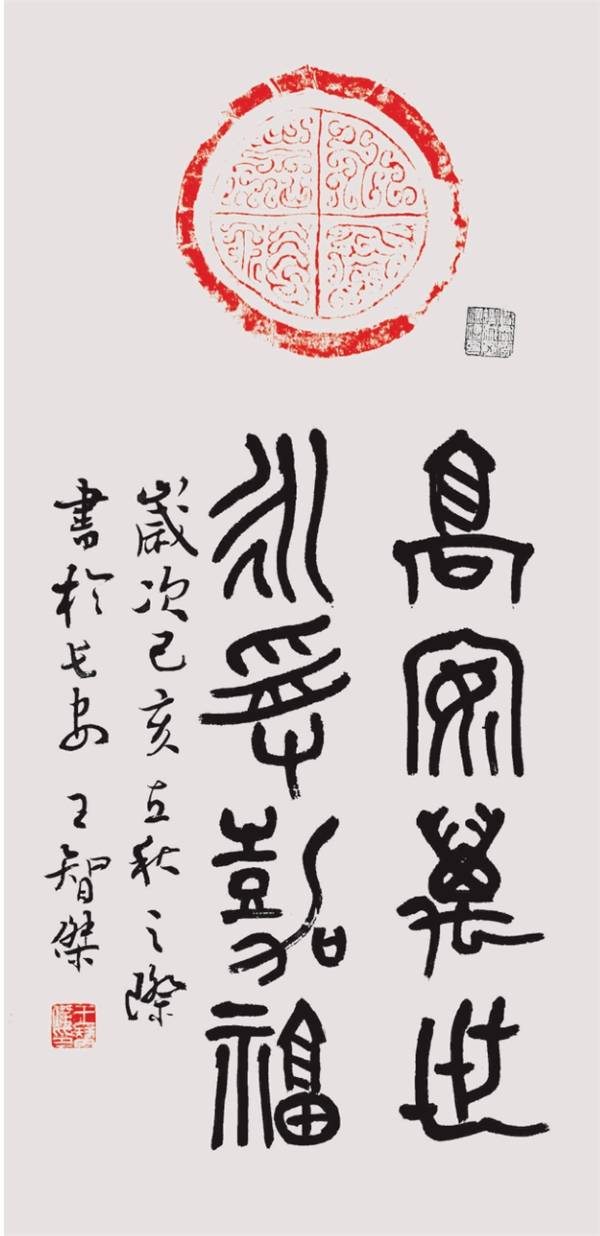 高安萬世
永受嘉福
歲次己亥立秋之際
書於長安 王智傑